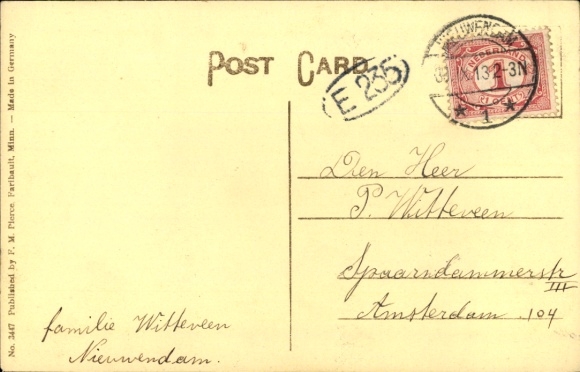 POST CARD
E 235
NIEUWENDAM
X 13 2-3N
1
NEDERLAND
1
Den Heer
P. Witteveen
Spaarndammerstr
III
Amsterdam. 104
familie Witteveen
Nieuwendam.
No. 3447 Published by F. M. Pierce, Faribault, Minn. — Made in Germany